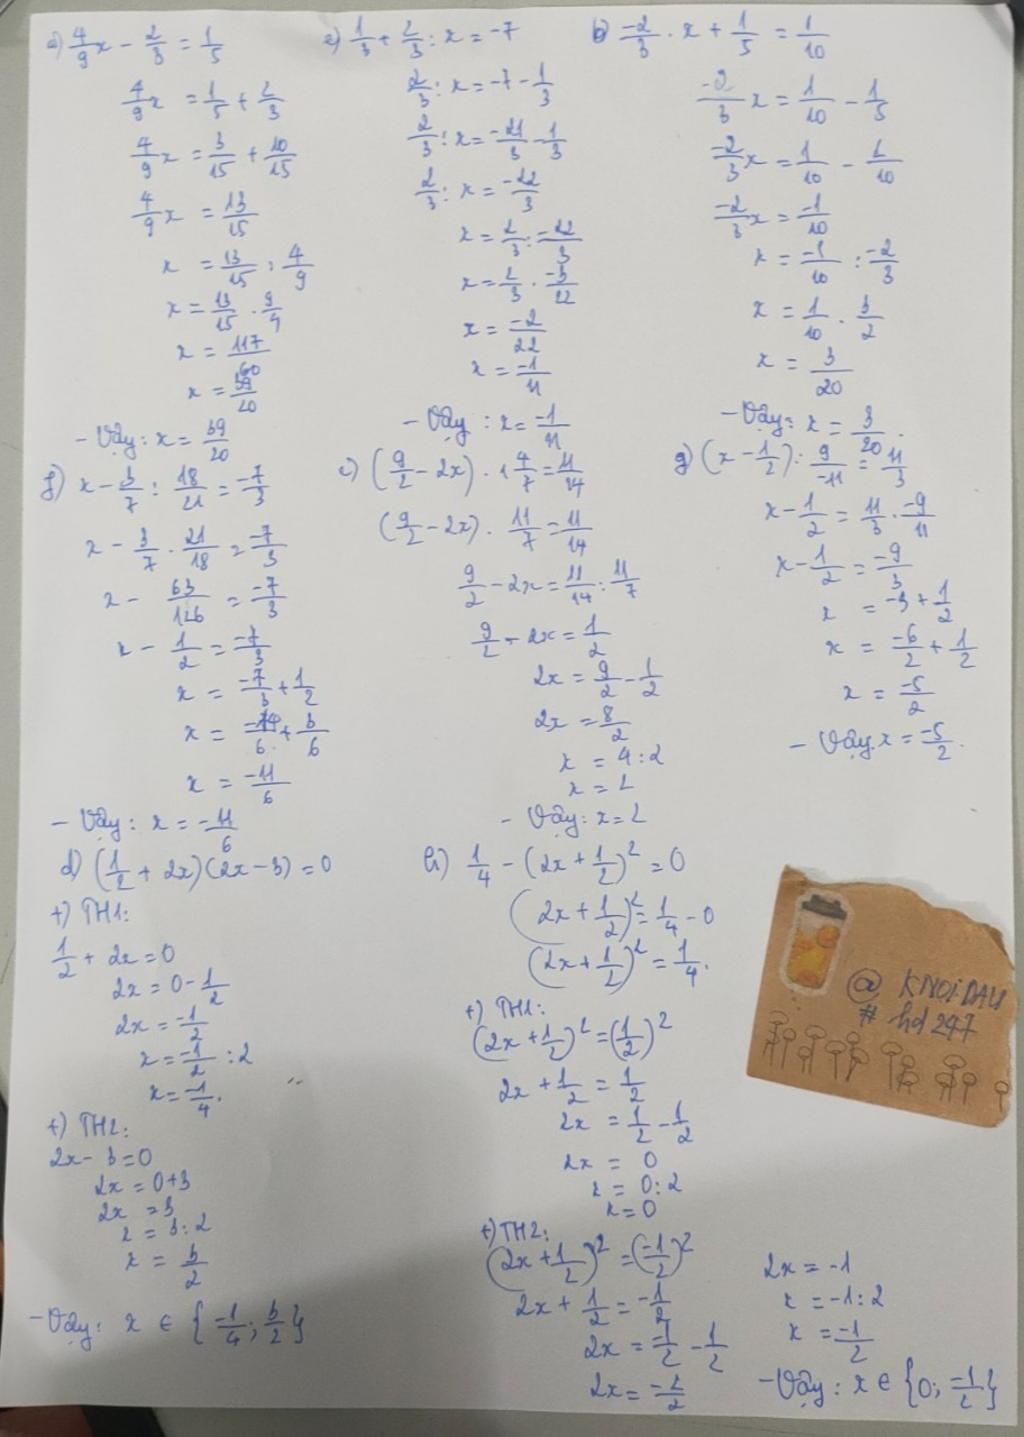 a) 4/9 x - 2/3 = 1/5
4/9 x = 1/5 + 2/3
4/9 x = 3/15 + 10/15
4/9 x = 13/15
x = 13/15 : 4/9
x = 13/15 . 9/4
x = 117/60
x = 39/20
- Vậy: x = 39/20
e) 1/3 + 2/3 : x = -7
2/3 : x = -7 - 1/3
2/3 : x = -21/3 - 1/3
2/3 : x = -22/3
x = 2/3 : -22/3
x = 2/3 . -3/22
x = -2/22
x = -1/11
- Vậy : x = -1/11
b) -2/3 . x + 1/5 = 1/10
-2/3 x = 1/10 - 1/5
-2/3 x = 1/10 - 2/10
-2/3 x = -1/10
x = -1/10 : -2/3
x = 1/10 . 3/2
x = 3/20
- Vậy: x = 3/20.
f) x - 3/7 : 18/21 = -7/3
x - 3/7 . 21/18 = -7/3
x - 63/126 = -7/3
x - 1/2 = -7/3
x = -7/3 + 1/2
x = -14/6 + 3/6
x = -11/6
- Vậy: x = -11/6
c) (9/2 - 2x) . 1 4/7 = 11/14
(9/2 - 2x) . 11/7 = 11/14
9/2 - 2x = 11/14 : 11/7
9/2 - 2x = 1/2
2x = 9/2 - 1/2
2x = 8/2
x = 4 : 2
x = 2
- Vậy: x = 2
g) (x - 1/2) : 9/-11 = 11/3
x - 1/2 = 11/3 . -9/11
x - 1/2 = -9/3
x = -3 + 1/2
x = -6/2 + 1/2
x = -5/2
- Vậy x = -5/2.
d) (1/2 + 2x)(2x - 3) = 0
+) TH1:
1/2 + 2x = 0
2x = 0 - 1/2
2x = -1/2
x = -1/2 : 2
x = -1/4.
+) TH2:
2x - 3 = 0
2x = 0 + 3
2x = 3
x = 3 : 2
x = 3/2
- Vậy: x ∈ {-1/4; 3/2}
h) 1/4 - (2x + 1/2)² = 0
(2x + 1/2)² = 1/4 - 0
(2x + 1/2)² = 1/4.
+) TH1:
(2x + 1/2)² = (1/2)²
2x + 1/2 = 1/2
2x = 1/2 - 1/2
2x = 0
x = 0 : 2
x = 0
+) TH2:
(2x + 1/2)² = (-1/2)²
2x + 1/2 = -1/2
2x = -1/2 - 1/2
2x = -2/2
2x = -1
x = -1 : 2
x = -1/2
- Vậy : x ∈ {0; -1/2}
@ KNOiDAU
# hd 247